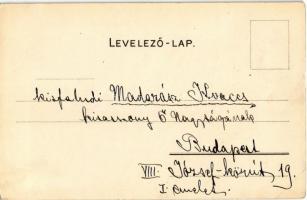 LEVELEZŐ-LAP.
kisfaludi Madarász Kovács
kisasszony Ő Nagyságának
Budapest
VIII. József-körút 19.
I. emelet.